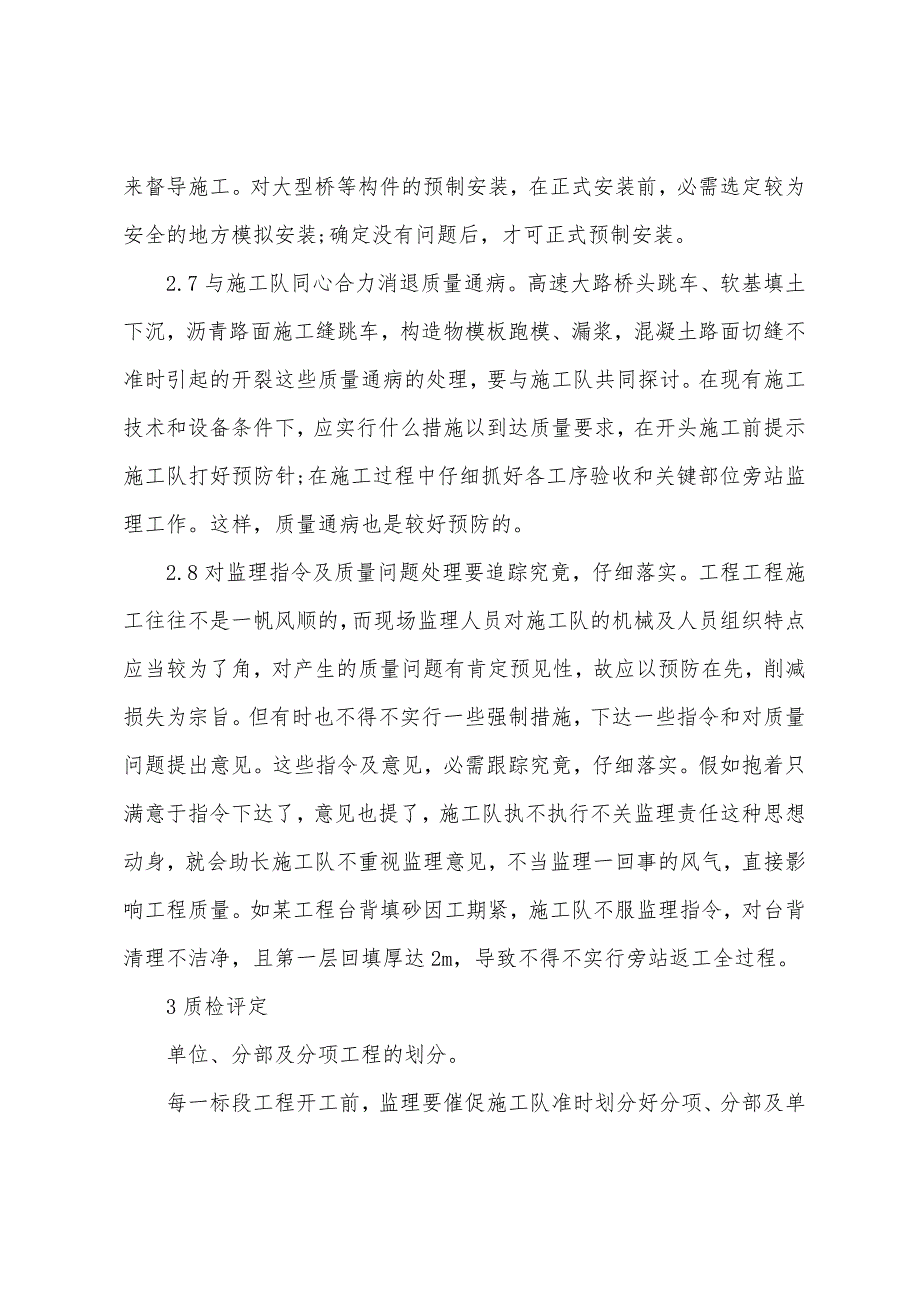 来督导施工。对大型桥等构件的预制安装，在正式安装前，必需选定较为
安全的地方模拟安装;确定没有问题后，才可正式预制安装。
2.7 与施工队同心合力消退质量通病。高速大路桥头跳车、软基填土
下沉，沥青路面施工缝跳车，构造物模板跑模、漏浆，混凝土路面切缝不
准时引起的开裂这些质量通病的处理，要与施工队共同探讨。在现有施工
技术和设备条件下，应实行什么措施以到达质量要求，在开头施工前提示
施工队打好预防针;在施工过程中仔细抓好各工序验收和关键部位旁站监
理工作。这样，质量通病也是较好预防的。
2.8 对监理指令及质量问题处理要追踪究竟，仔细落实。工程工程施
工往往不是一帆风顺的，而现场监理人员对施工队的机械及人员组织特点
应当较为了角，对产生的质量问题有肯定预见性，故应以预防在先，削减
损失为宗旨。但有时也不得不实行一些强制措施，下达一些指令和对质量
问题提出意见。这些指令及意见，必需跟踪究竟，仔细落实。假如抱着只
满意于指令下达了，意见也提了，施工队执不执行不关监理责任这种思想
动身，就会助长施工队不重视监理意见，不当监理一回事的风气，直接影
响工程质量。如某工程台背填砂因工期紧，施工队不服监理指令，对台背
清理不洁净，且第一层回填厚达 2m，导致不得不实行旁站返工全过程。
3 质检评定
单位、分部及分项工程的划分。
每一标段工程开工前，监理要催促施工队准时划分好分项、分部及单